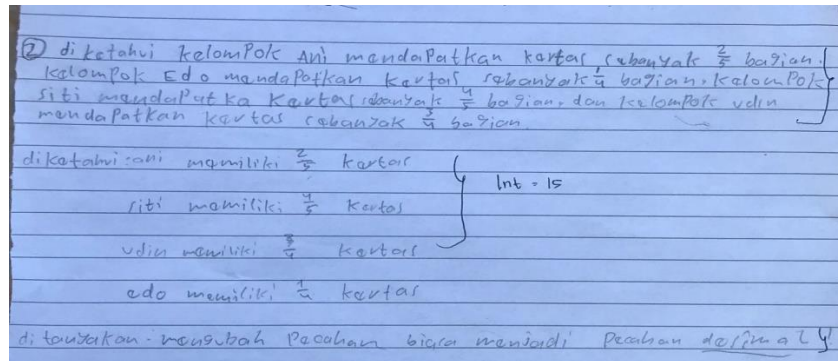 ② diketahui kelompok Ani mendapatkan kertas sebanyak 2/5 bagian.
kelompok Edo mendapatkan kertas sebanyak 1/4 bagian. kelompok
siti mendapat ka kertas sebanyak 4/5 bagian, dan kelompok udin
mendapatkan kertas sebanyak 3/4 bagian
diketahui : ani memiliki 2/5 kertas
siti memiliki 4/5 kertas
Int = 15
udin memiliki 3/4 kertas
edo memiliki 1/4 kertas
ditanyakan - mengubah pecahan biasa menjadi pecahan desimal